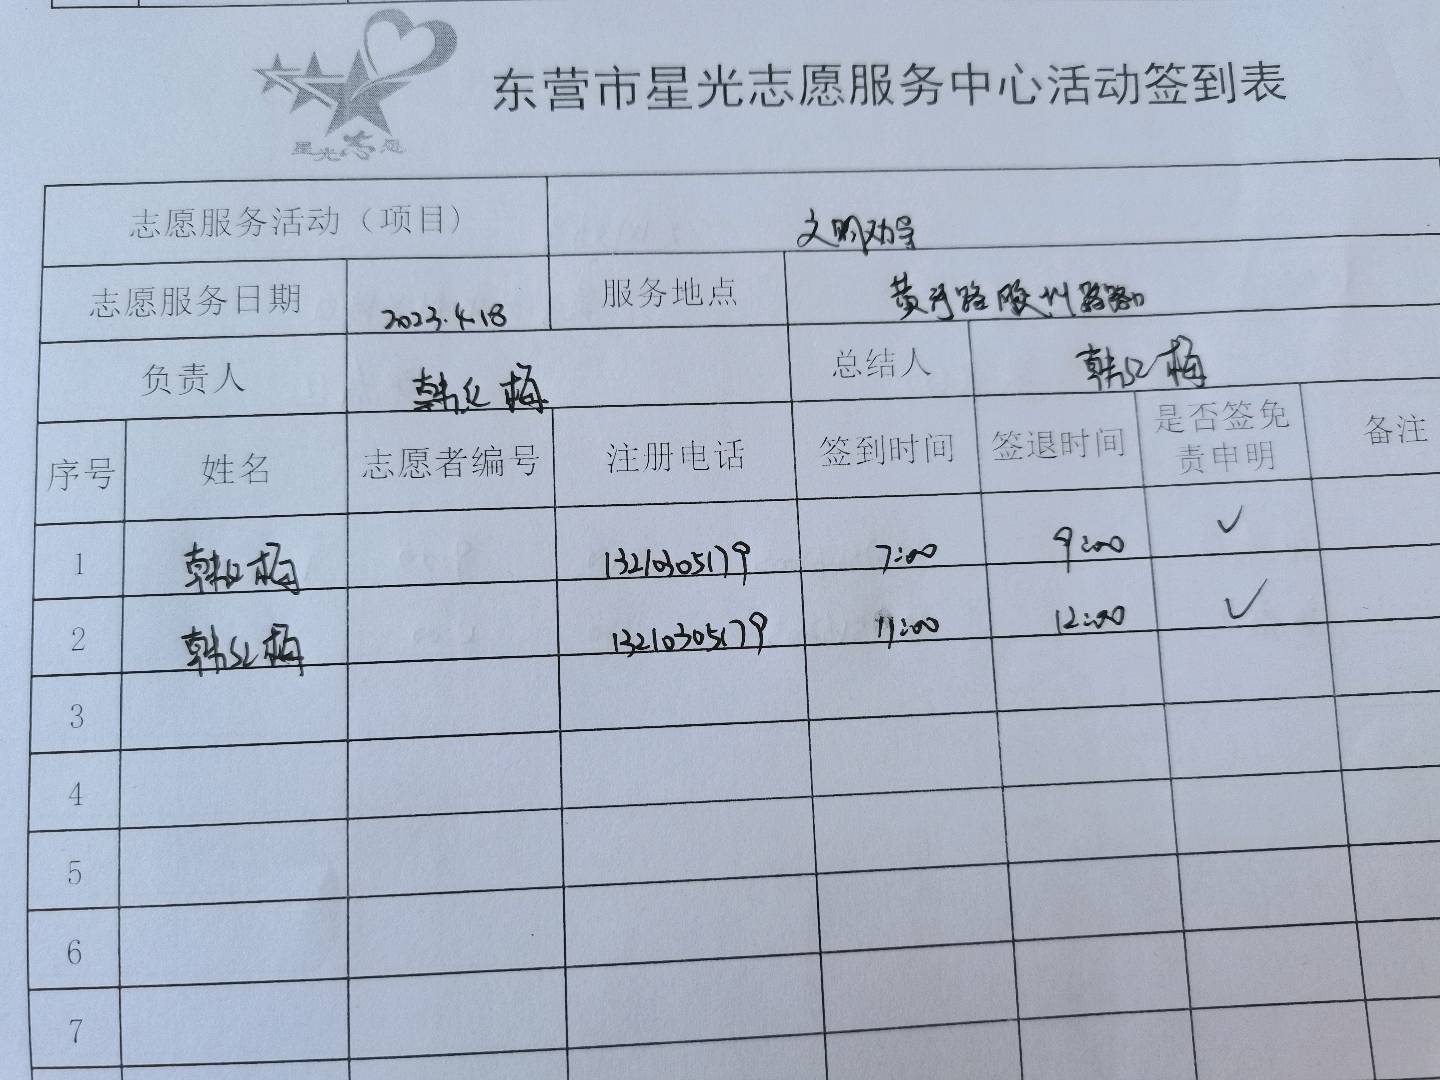 星光志愿
东营市星光志愿服务中心活动签到表
志愿服务活动（项目） 文明劝导
志愿服务日期 2023.4.18 服务地点 黄河路胶州路路口
负责人 韩红梅 总结人 韩红梅
序号 姓名 志愿者编号 注册电话 签到时间 签退时间 是否签免责申明 备注
1 韩红梅 13210305179 7:00 9:00 ✓
2 韩红梅 13210305179 11:00 12:00 ✓
3
4
5
6
7